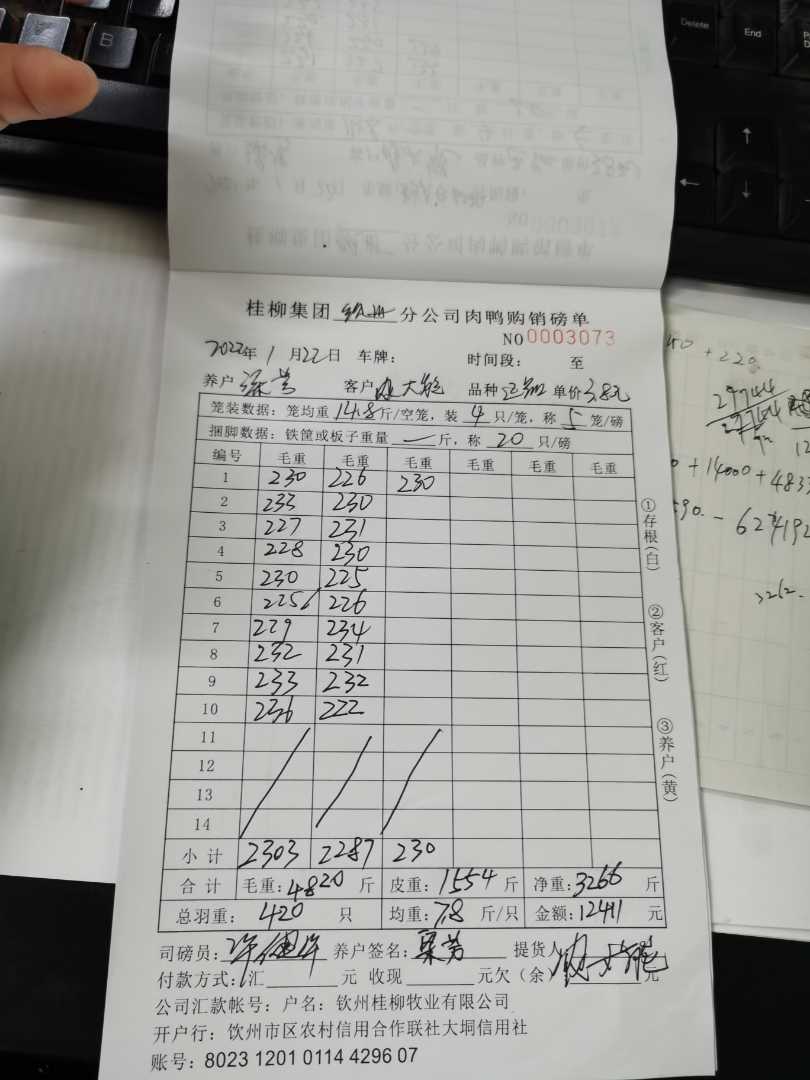 Delete
End
B
桂柳集团 钦州 分公司肉鸭购销磅单
NO 0003073
2022年 1 月 22 日 车牌： 时间段： 至
养户 客户 品种 单价 3.8元
笼装数据：笼均重 14.8 斤/空笼，装 4 只/笼，称 5 笼/磅
捆脚数据：铁筐或板子重量 一 斤，称 20 只/磅
编号 毛重 毛重 毛重 毛重 毛重 毛重
1 230 226 230
2 233 230
3 227 231
4 228 230
5 230 225
6 225 226
7 229 234
8 232 231
9 233 232
10 236 222
11
12
13
14
小计 2303 2287 230
合计 毛重：4820 斤 皮重：1554 斤 净重：3266 斤
总羽重：420 只 均重：7.8 斤/只 金额：12411 元
司磅员： 养户签名： 提货人
付款方式：汇 元 收现 元欠（余） 元
公司汇款帐号：户名：钦州桂柳牧业有限公司
开户行：饮州市区农村信用合作联社大垌信用社
账号：8023 1201 0114 4296 07
①存根（白）
②客户（红）
③养户（黄）
40 + 220
29744
+ 14000 + 4833